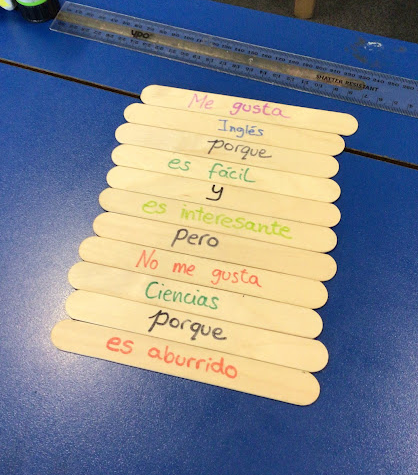 Me gusta
Inglés
porque
es fácil
y
es interesante
pero
No me gusta
Ciencias
porque
es aburrido
SHATTER RESISTANT